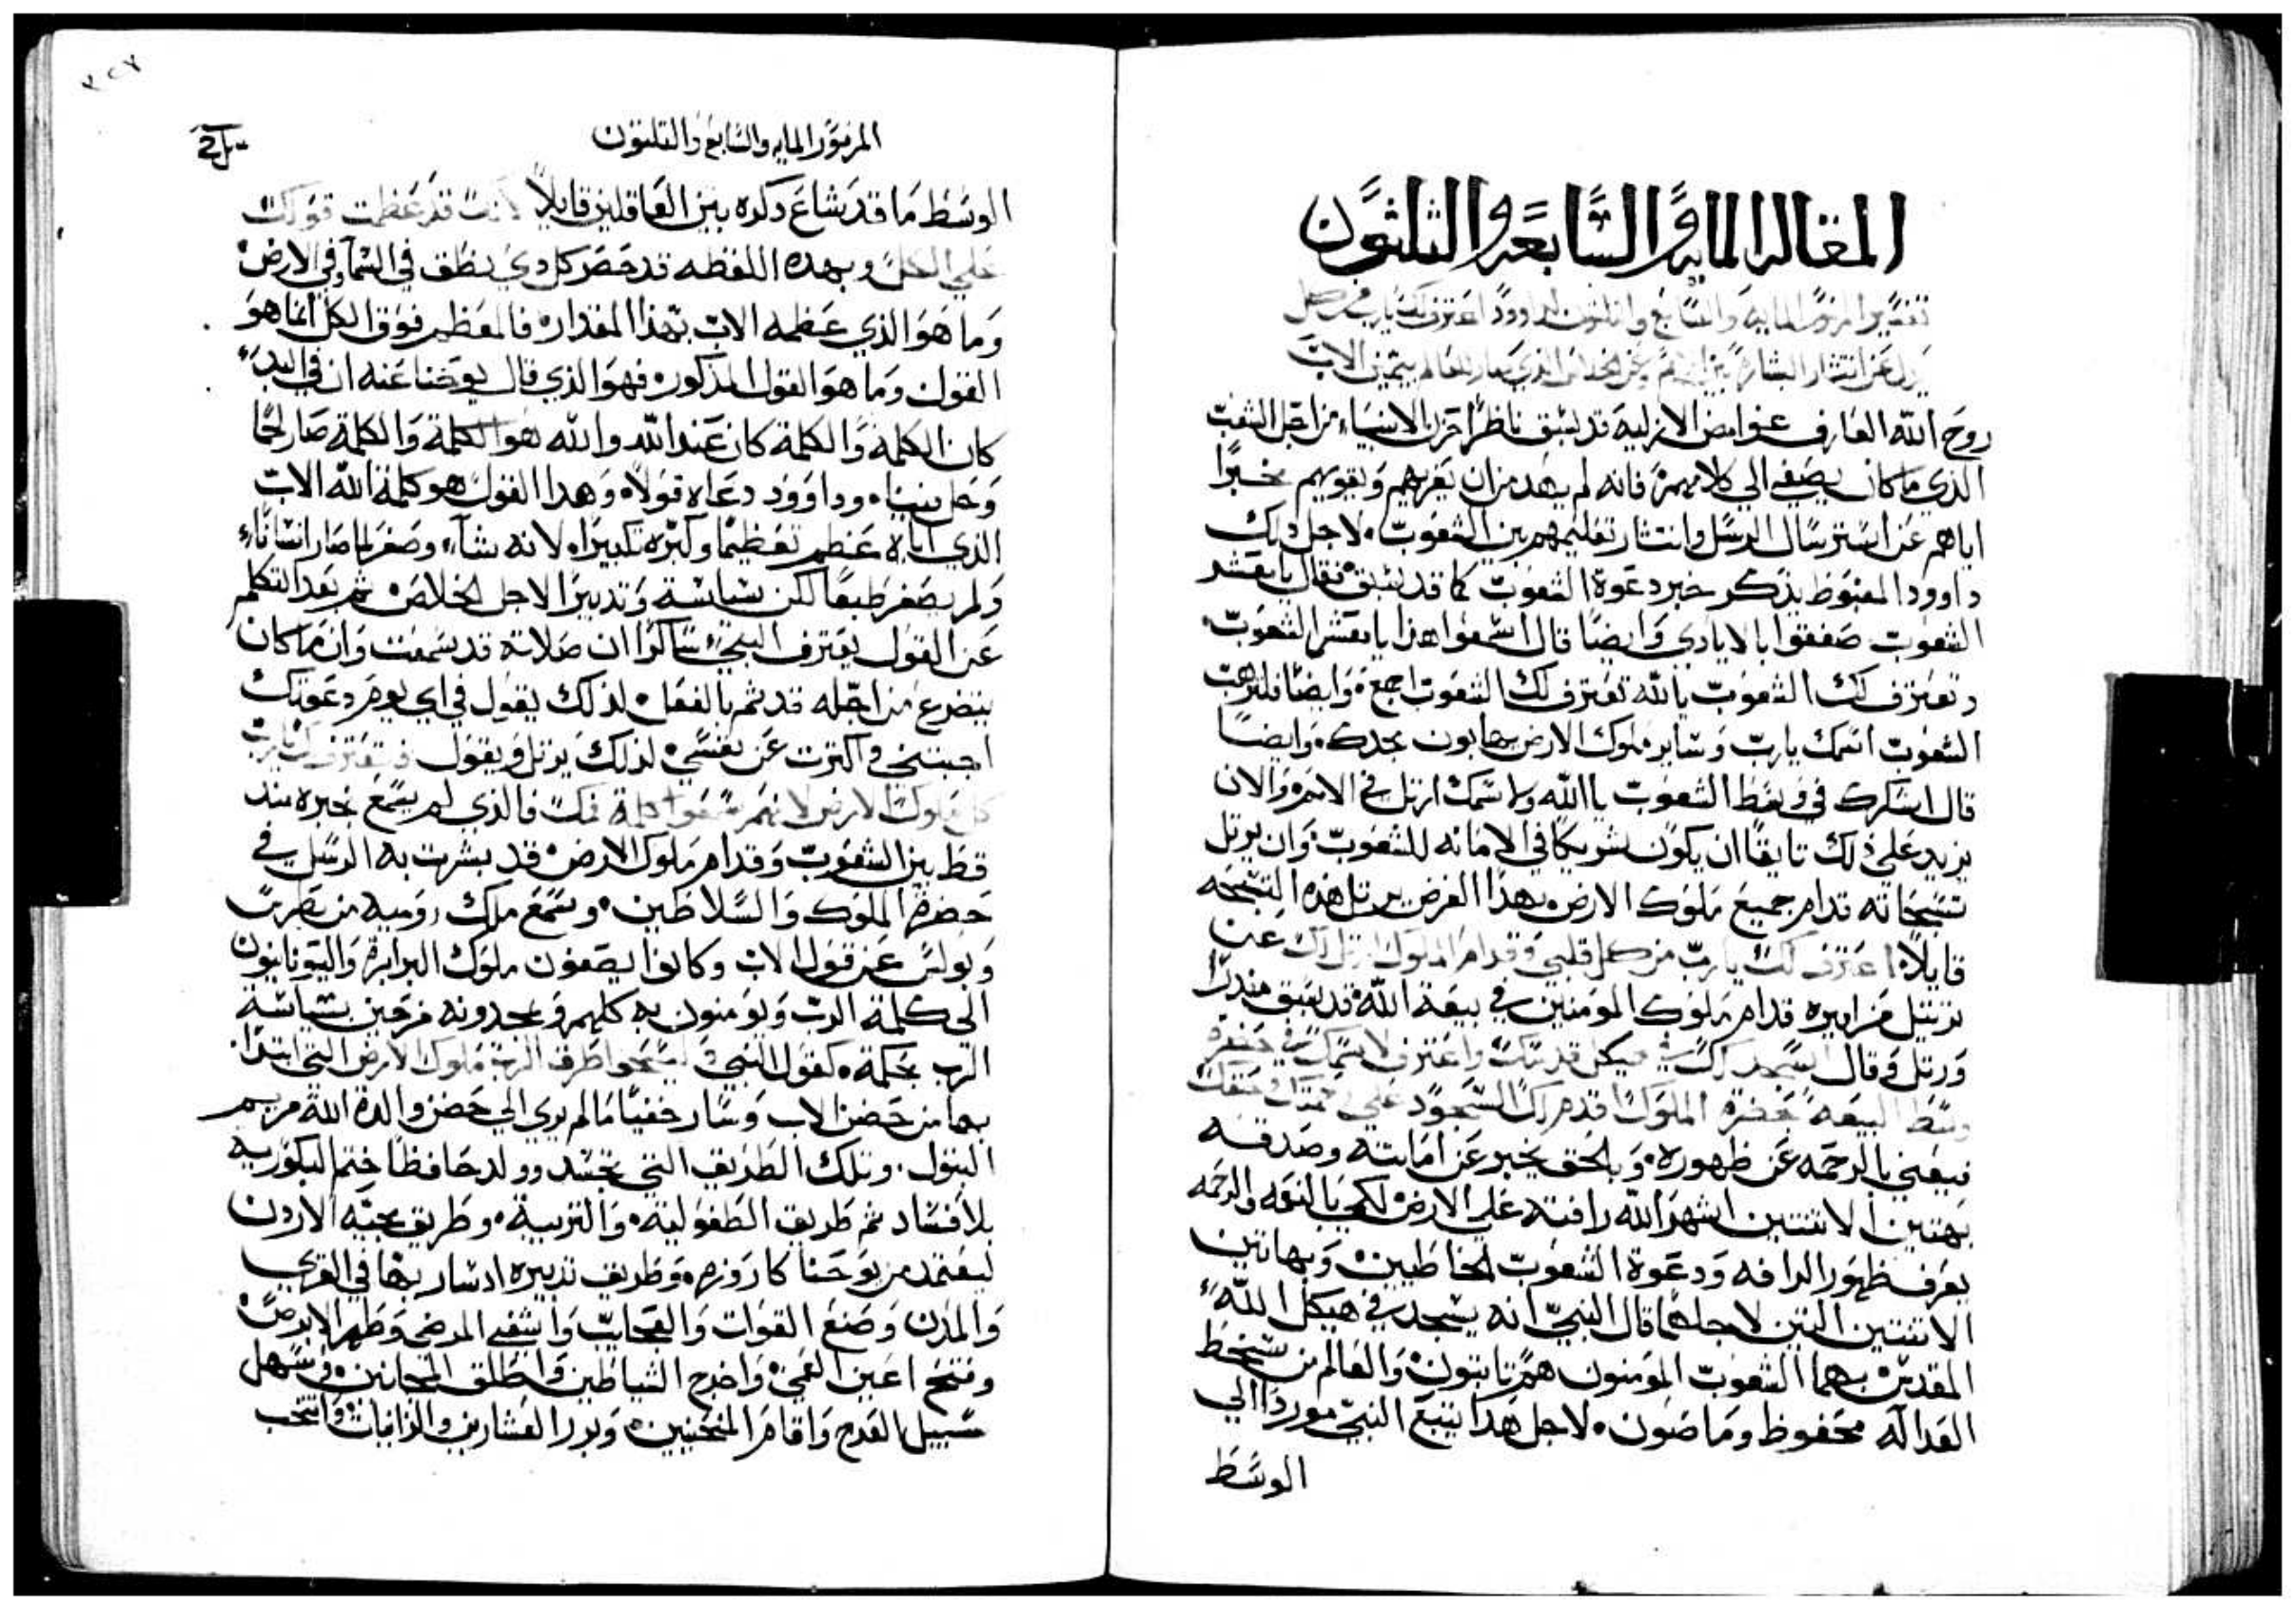 المقاله المايه والسابعه والثلثون
تفسير المزمور المايه والسابع والثلثون لداوود اعترف لك يارب من كل
يدل عن انتشار البشاره بين الامم وعن الخلاص الذي صار للعالم بيمين الاب
روح الله العارف غوامض الازلية قد سبق ناظرا حزن الانبياء من اجل الشعب
الذي ما كان يصغي الي كلامهم فانه لم يهد من ان يعزيهم ويقويهم مخبرا
اياهم عن استرسال الرسل وانتشار تعليمهم بين الشعوب لاجل ذلك
داوود المغبوط يذكر خبر دعوة الشعوب كما قد سبق فقال يا معشر
الشعوب صفقوا بالايادي وايضا قال اسمعوا هذا يا معشر الشعوب
وتعترف لك الشعوب يا الله تعترف لك الشعوب اجمع وايضا فلترهب
الشعوب اسمك يارب وساير ملوك الارض يهابون مجدك وايضا
قال اشكرك في وسط الشعوب يا الله ولاسمك ارتل في الامم والان
يزيد علي ذلك تايقا ان يكون شريكا في الامانه للشعوب وان يرتل
تسبحاته قدام جميع ملوك الارض بهذا الغرض يرتل هذه التسبحه
قايلا اعترف لك يارب من كل قلبي وقدام الملوك ارتل لك عن
ترتيل مزاميره قدام ملوك المومنين في بيعة الله قد سبق منذرا
ورتل وقال اسجد لك في هيكل قدسك واعترف لاسمك في حضره
وسط البيعه بحضرة الملوك اقدم لك السجود علي رحمتك وحقك
فيعني بالرحمه عن ظهوره وبالحق يخبر عن امانته وصدقه
بهتين الاثنتين اشهر الله رافته علي الارض لكي بالنعمه والرحمه
يعرف ظهور الرافه ودعوة الشعوب الخاطيين وبهاتين
الاثنتين التين لاجلهما قال النبي انه يسجد في هيكل الله
المقدس بهما الشعوب المومنون هم تايتون والعالم من سخط
العداله محفوظ وماصون لاجل هذا يتبع النبي موردا الي
الوسط
المزمور المايه والسابع والثلثون
الوسط ما قد شاع ذكره بين العاقلين قايلا لانك قد عظمت قولك
علي الكل وبهذه اللفظه قد حصر كل ذي نطق في السما وفي الارض
وما هو الذي عظمه الاب بهذا المقدار فالمعظم فوق الكل انما هو
القول وما هو القول المذكور فهو الذي قال يوحنا عنه ان في البدء
كان الكلمة والكلمة كان عند الله والله هو الكلمة والكلمة صار لحما
وحل بيننا وداوود دعاه قولا وهذا القول هو كلمة الله الاب
الذي اياه عظم تعظيما وكبره تكبيرا لانه شآء وصغر لما صار انسانا
ولم يصغر طبعا لكن بسياسة وتدبيرا لاجل الخلاص ثم بعد التكلم
عن القول يعترف النبي شاكرا ان صلاته قد سمعت وان ما كان
يتضرع من اجله قد تم بالفعل لذلك يقول في اي يوم دعوتك
اجبتني واكثرت عن نفسي لذلك يرتل ويقول فتعترف لك يارب
كل ملوك الارض لانهم سمعوا كلمة فمك فالذي لم يسمع خبره منذ
قط بين الشعوب وقدام ملوك الارض قد بشرت به الرسل في
حضرة الملوك والسلاطين وسمع ملك روميه من بطرس
وبولس عن قول الاب وكانوا يصغون ملوك البرابرة واليونانيون
الي كلمة الرب ويومنون به كلهم ويمجدونه فرحين بسياسة
الرب بحكمة كقول النبي ليسبحوا طرق الرب ملوك الارض التي ابتدا
بها من حضن الاب وسار خفيا ما لم يري الي حضن والدة الله مريم
البتول وتلك الطريق التي تجسد وولد حافظا ختم البكوريه
بلا فساد ثم طريق الطفولية والتربية وطريق مجيه الاردن
ليعتمد من يوحنا كاروزه وطريق تدبيره اذ سار بها في القري
والمدن وصنع القوات والعجايب واشفي المرضي وطهر الابرص
وفتح اعين العمي واخرج الشياطين واطلق المجانين وسهل
سبيل العرج واقام المنحنيين وبرر العشارين والزانيات وانتخب